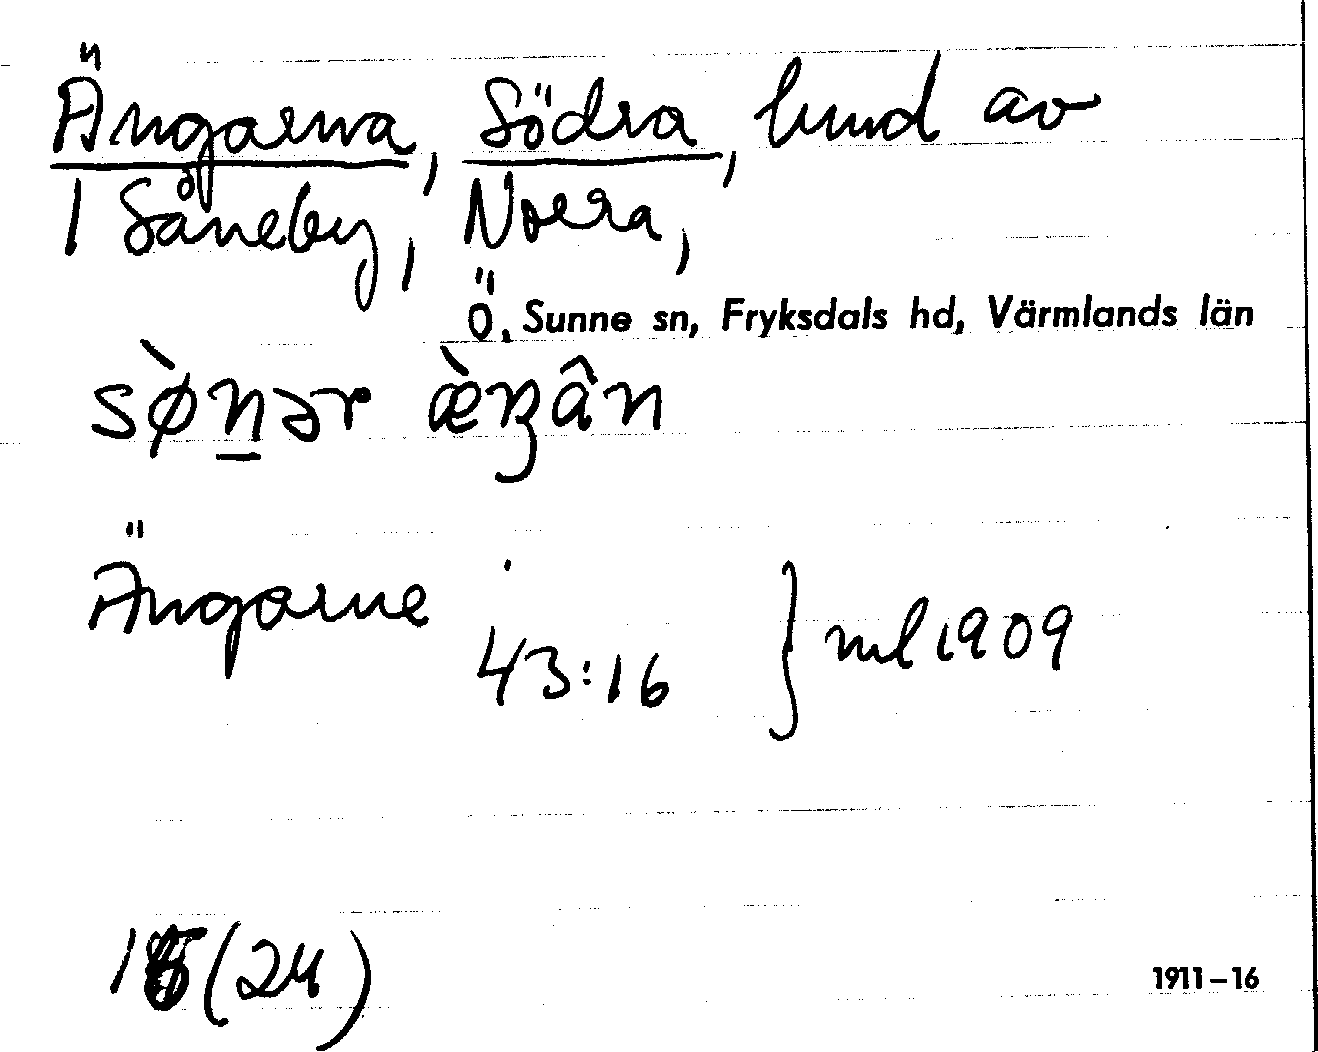 Ängarna, Södra, hmd av
1 Såneby, Norra,
Ö. Sunne sn, Fryksdals hd, Värmlands län
sø̀nər æ̀ŋân
Ängarne
43:16 } ml 1909
(24)
1911–16